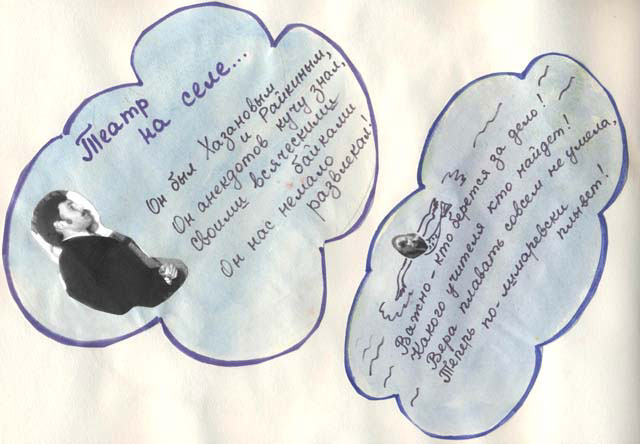 Театр
на селе...
Он был Хазановым
и Райкиным,
Он анекдотов кучу знал,
своими всяческими
байками
Он нас немало
развлекал!
Важно - кто берется за дело!
Какого учителя кто найдет!
Вера плавать совсем не умела,
Теперь по-шмаревски
плывет!